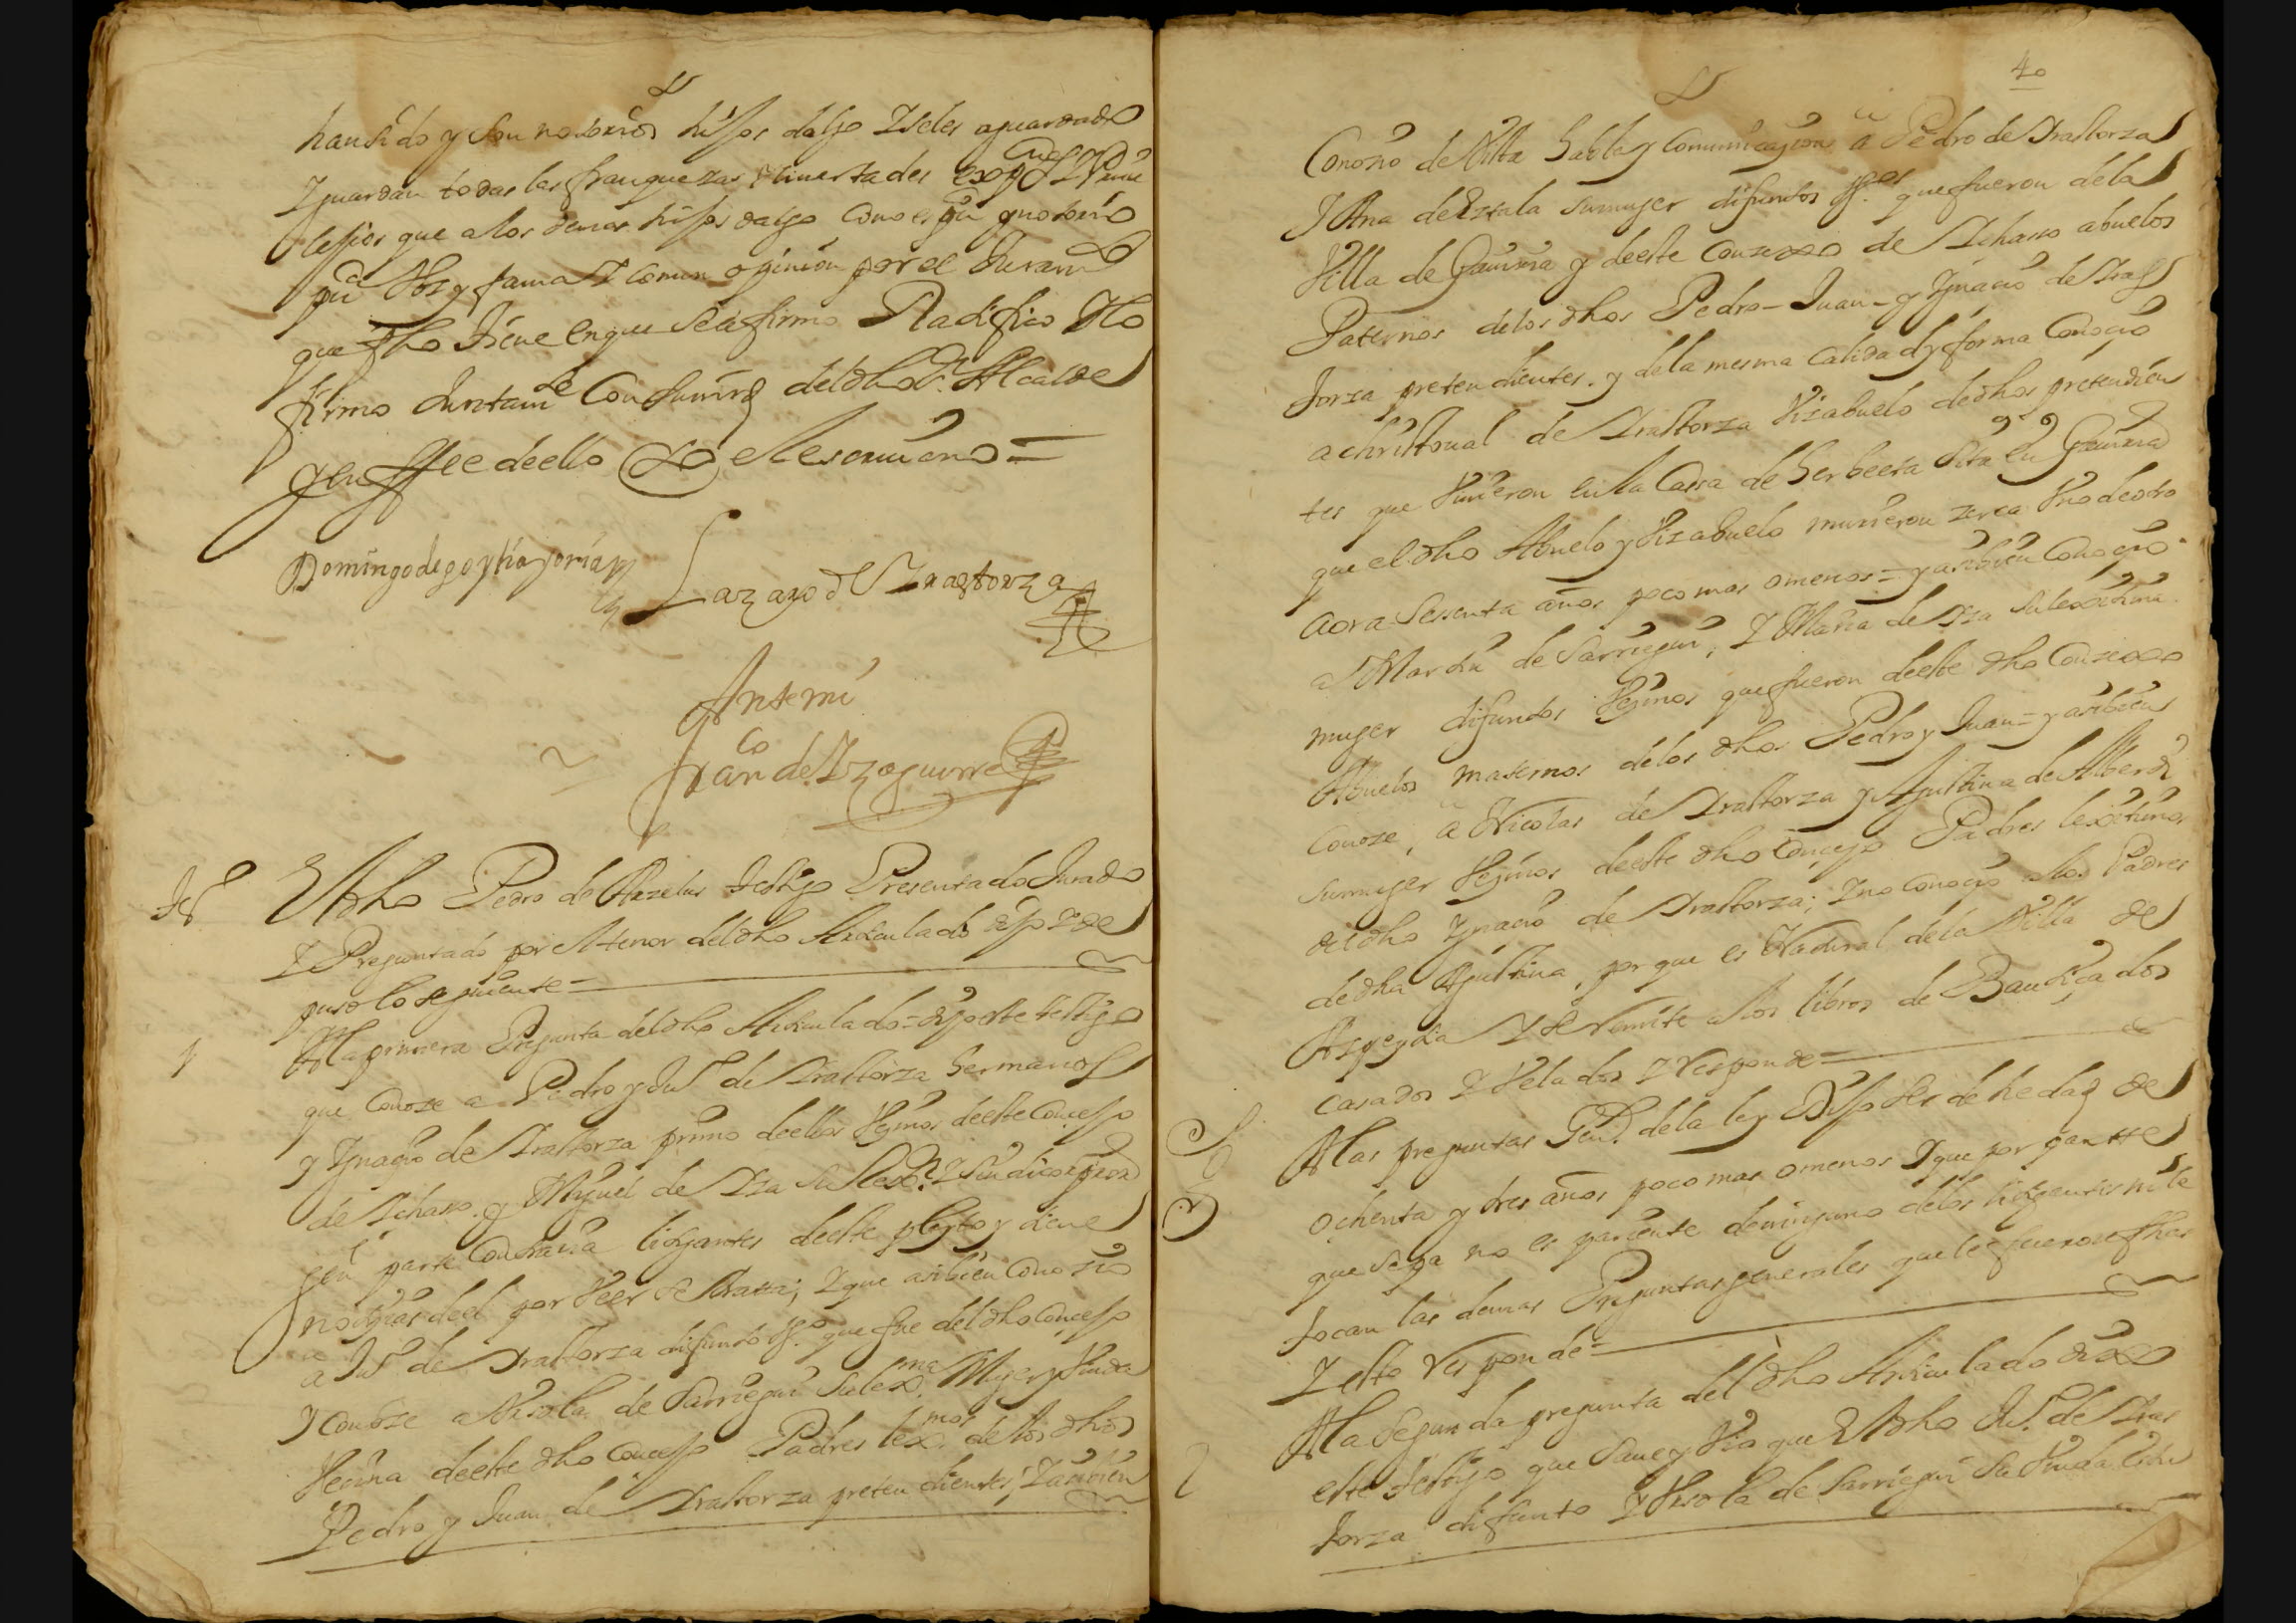 han sido y son notorios hijos dalgo I seles a guardado
I guardan todas las franquezas livertades exempçiones I Priui
lejios que a los demas hijos dalgo como es pu.co y notorio
pu.ca Voz y fama I comun opinion por el Juram.to
que fho tiene en que se afirmo Radifico I lo
firmo Juntam.te Con su mrd del dho S.r Alcalde
y en ffee de ello Yo el escriuano =
Domingo de goythia joria
Lazaro de Yraztorza
Ante mi
Fran.co de Yzaguirre
T.o
El dho Pedro de Arzelus testigo Presentado Jurado
I Preguntado por el tenor del dho Articulado dijo I de
puso lo siguiente =
1
A la primera Pregunta del dho Articulado = dijo este testigo
que Conoze a Pedro y Ju.o de Yrastorza hermanos
y Ygnaçio de Yrastorza primo de ellos Veçinos de este Conçejo
de Ichaso. y Miguel de Yza su Rex.or I Sindico pror
gen.l parte Contraria litigantes de este pleyto y tiene
notiçias de el por Veer se trata; I que asibien Conozio
a Ju.o de Yrastorza difunto V.o que fue del dho Conçejo
I Conoze a Nicola de Sarriegui su lex.ma Muger y Viuda
Veçina de este dho Conçejo Padres lex.mos de los dhos
Pedro y Juan de Yrastorza pretendientes; I tanbien
40
Conozio de Vista habla y Comunicaçion a Pedro de Yrastorza
I Ana de Eztala su muger difuntos V.os que fueron de la
Villa de Gauiria y de este Conzexo de Ychaso abuelos
Paternos de los dhos Pedro - Juan - y Ygnaçio de Yras
torza pretendientes. y de la mesma Calidad y forma Conoçio
a christoual de Yrastorza Vizabuelo de dhos pretendien
tes que Viuieron en la Cassa de herbeeta Sita en Gauiria
que el dho Abuelo y Vizabuelo murieron zerca Vno de otro
aora sesenta años poco mas o menos = y asibien Conoçio
a Martin de Sarriegui, I Maria de Yza su lexitima
muger difuntos Veçinos que fueron de este dho Conzexo
Abuelos maternos de los dhos Pedro y Juan = y asibien
Conoze, a Nicolas de Yrastorza y Agustina de Alberdi
su muger Veçinos de este dho Conçejo Padres lexitimos
del dho Ygnaçio de Yrastorza; I no Conoçio a los Padres
de dha Agustina, por que es Natural de la Villa de
Azpeytia I se remite a los libros de Bautiçados
casados I Velados I Responde =
A las preguntas Gen.s de la ley Dijo ser de hedad de
ochenta y tres años poco mas o menos I que por partte
que sepa no es pariente de ninguno de los litigantes ni le
tocan las demas Preguntas generales que le fueron fhas
I esto Responde =
2
A la Segunda pregunta del dho Articulado dixo
este testigo que Saue y Vio que El dho Ju.o de Yras
torza difunto I Nicola de Sarriegui su Viuda